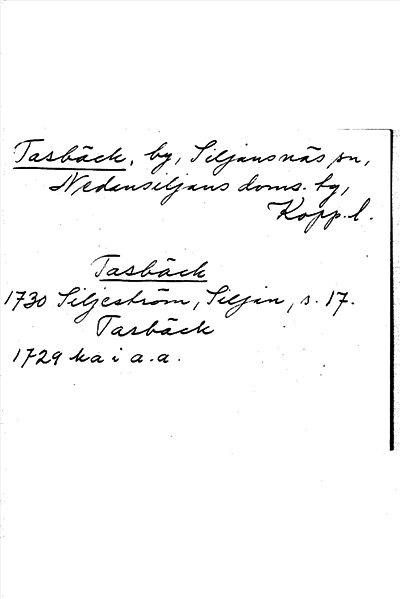 Tasbäck, by, Siljansnäs sn,
Nedansiljans doms. hg,
Kopp. l.
Tasbäck
1730 Siljeström, Siljan, s. 17.
Tasbäck
1729 ka i a.a.